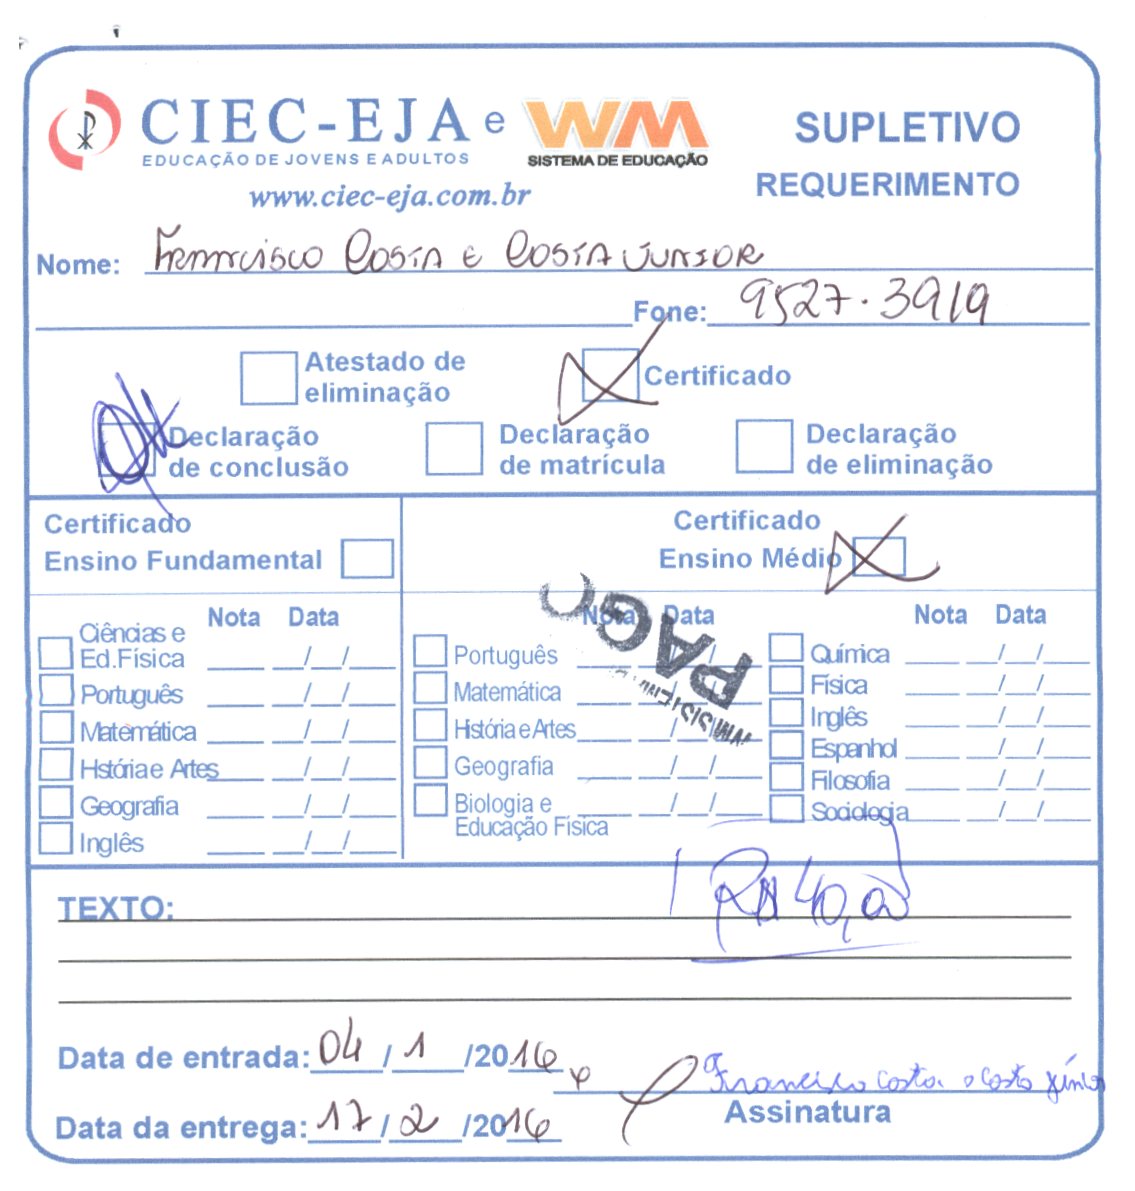 CIEC-EJA e WM
EDUCAÇÃO DE JOVENS E ADULTOS
SISTEMA DE EDUCAÇÃO
www.ciec-eja.com.br
SUPLETIVO
REQUERIMENTO
Nome: FRANCISCO COSTA E COSTA JUNIOR
Fone: 9527.3919
Atestado de
eliminação
Certificado
Declaração
de conclusão
Declaração
de matrícula
Declaração
de eliminação
Certificado
Ensino Fundamental
Nota Data
Ciências e
Ed.Física ____ __/__/__
Português ____ __/__/__
Matemática ____ __/__/__
História e Artes ____ __/__/__
Geografia ____ __/__/__
Inglês ____ __/__/__
Certificado
Ensino Médio
Nota Data
Português ____ __/__/__
Matemática ____ __/__/__
História e Artes ____ __/__/__
Geografia ____ __/__/__
Biologia e ____ __/__/__
Educação Física
PAGO
Nota Data
Química ____ __/__/__
Física ____ __/__/__
Inglês ____ __/__/__
Espanhol ____ __/__/__
Filosofia ____ __/__/__
Sociologia ____ __/__/__
R$ 40,00
TEXTO:
Data de entrada: 04/1/2016
Francisco Costa e Costa Júnior
Assinatura
Data da entrega: 17/2/2016